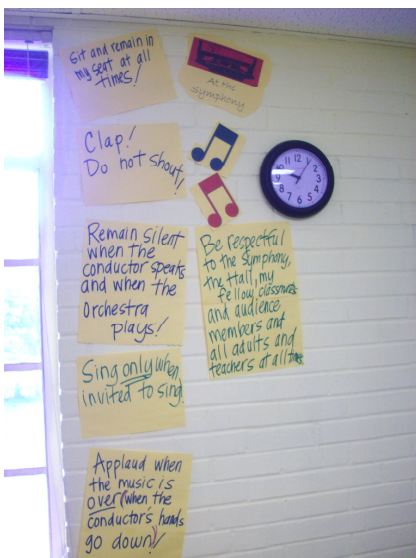 Sit and remain in
my seat at all
times!
At the
Symphony
Clap!
Do not shout!
Remain silent
when the
conductor speaks
and when the
Orchestra
plays!
Be respectful
to the Symphony,
the Hall, my
fellow classmates
and audience
members and
all adults and
teachers at all times
Sing only when
invited to sing.
Applaud when
the music is
over (when the
conductor's hands
go down)!
12
1
2
3
4
5
6
7
8
9
10
11